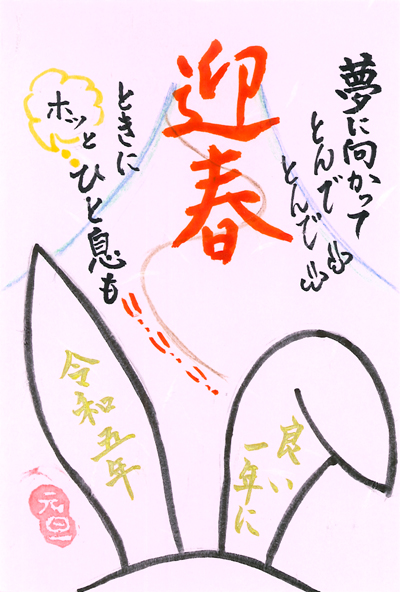 夢に向かって
とんで
とんで
迎春
ときに
ホッと
ひと息も
良い
一年に
令和五年
元旦